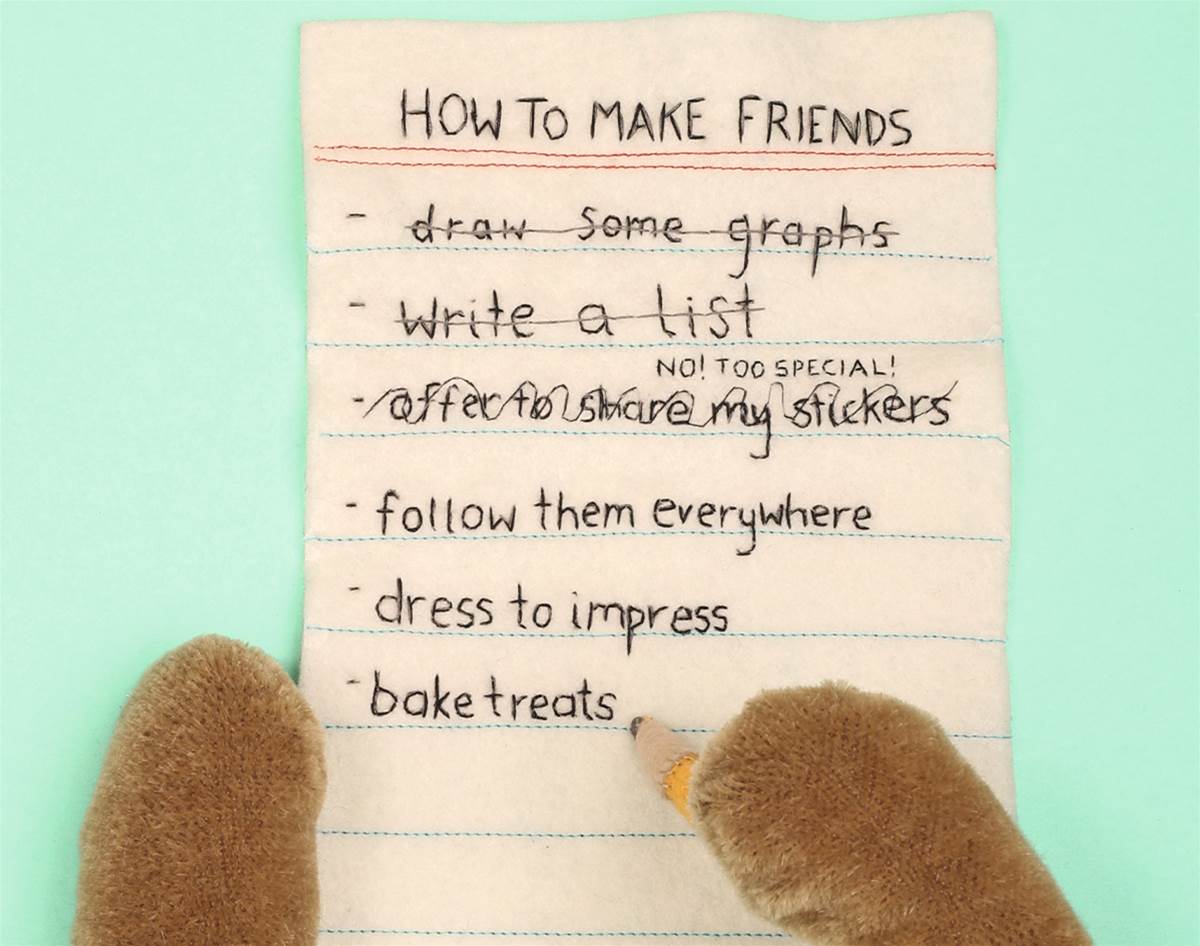 HOW TO MAKE FRIENDS
- draw some graphs
- write a list
NO! TOO SPECIAL!
- offer to share my stickers
- follow them everywhere
- dress to impress
- bake treats